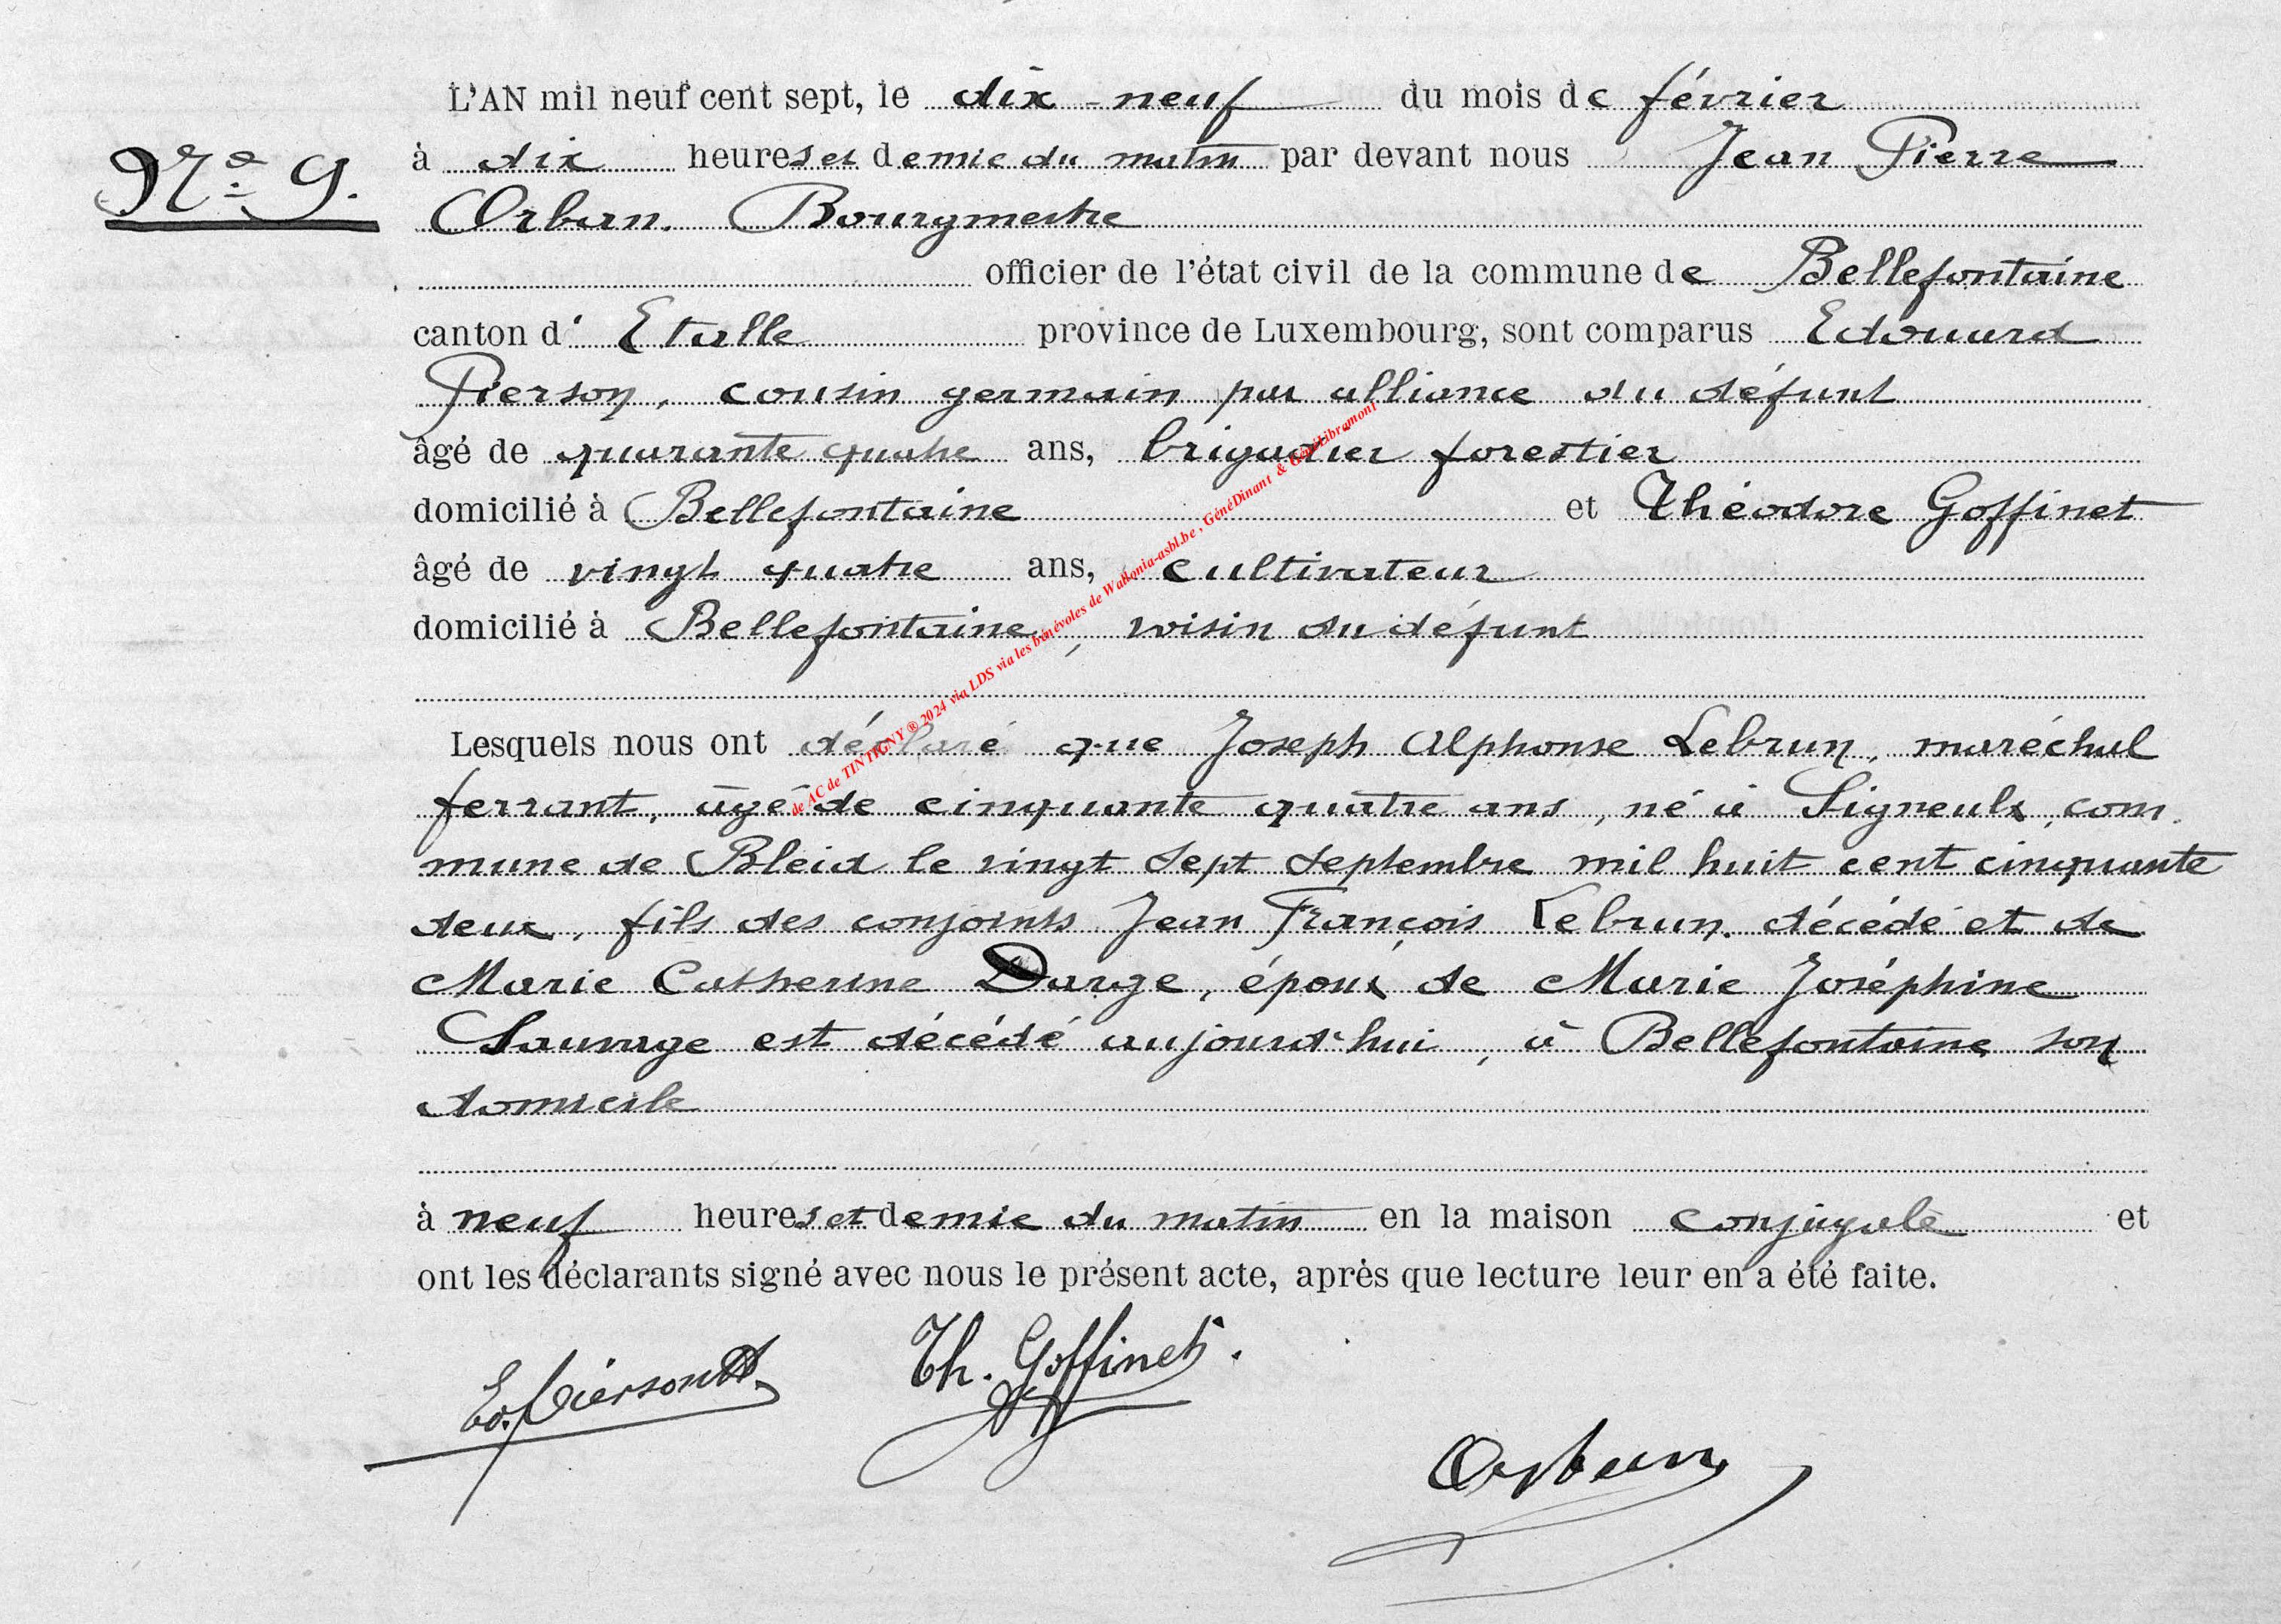 L'AN mil neuf cent sept, le dix-neuf du mois de février
N° 9. à dix heures et demie du matin par devant nous Jean Pierre
Orban. Bourgmestre
officier de l'état civil de la commune de Bellefontaine
canton d' Etalle province de Luxembourg, sont comparus Edouard
Pierson, cousin germain par alliance du défunt
âgé de quarante quatre ans, brigadier forestier
domicilié à Bellefontaine et Théodore Goffinet
âgé de vingt quatre ans, cultivateur
domicilié à Bellefontaine, voisin du défunt
Lesquels nous ont déclaré que Joseph Alphonse Lebrun, maréchal
ferrant, âgé de cinquante quatre ans, né à Signeulx, com
mune de Bleid le vingt sept septembre mil huit cent cinquante
deux, fils des conjoints Jean François Lebrun, décédé et de
Marie Catherine Darge, époux de Marie Joséphine
Sauvage est décédé aujourd'hui, à Bellefontaine son
domicile
à neuf heures et demie du matin en la maison conjugale et
ont les déclarants signé avec nous le présent acte, après que lecture leur en a été faite.
Ed. Pierson Th. Goffinet.
Orban
de AC de TINTIGNY ® 2024 via LDS via les bénévoles de Wallonia-asbl.be , GénéDinant & GénéLibramont